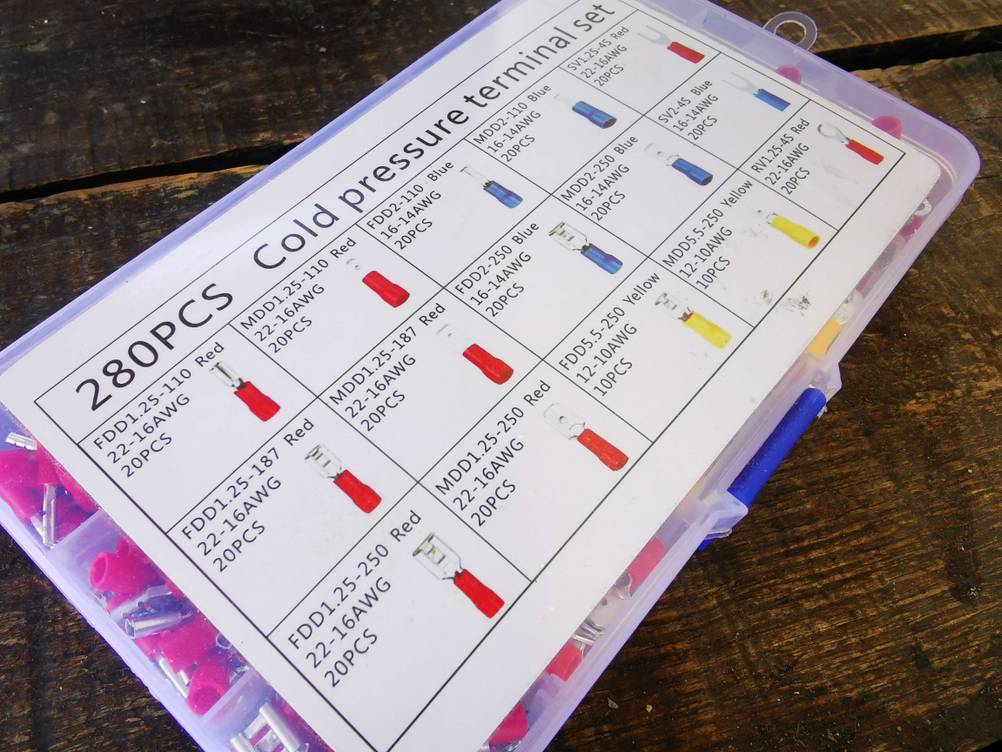 280PCS Cold pressure terminal set
FDD1.25-110 Red
22-16AWG
20PCS
MDD1.25-110 Red
22-16AWG
20PCS
FDD2-110 Blue
16-14AWG
20PCS
MDD2-110 Blue
16-14AWG
20PCS
SV1.25-4S Red
22-16AWG
20PCS
FDD1.25-187 Red
22-16AWG
20PCS
MDD1.25-187 Red
22-16AWG
20PCS
FDD2-250 Blue
16-14AWG
20PCS
MDD2-250 Blue
16-14AWG
20PCS
SV2-4S Blue
16-14AWG
20PCS
FDD1.25-250 Red
22-16AWG
20PCS
MDD1.25-250 Red
22-16AWG
20PCS
FDD5.5-250 Yellow
12-10AWG
10PCS
MDD5.5-250 Yellow
12-10AWG
10PCS
RV1.25-4S Red
22-16AWG
20PCS